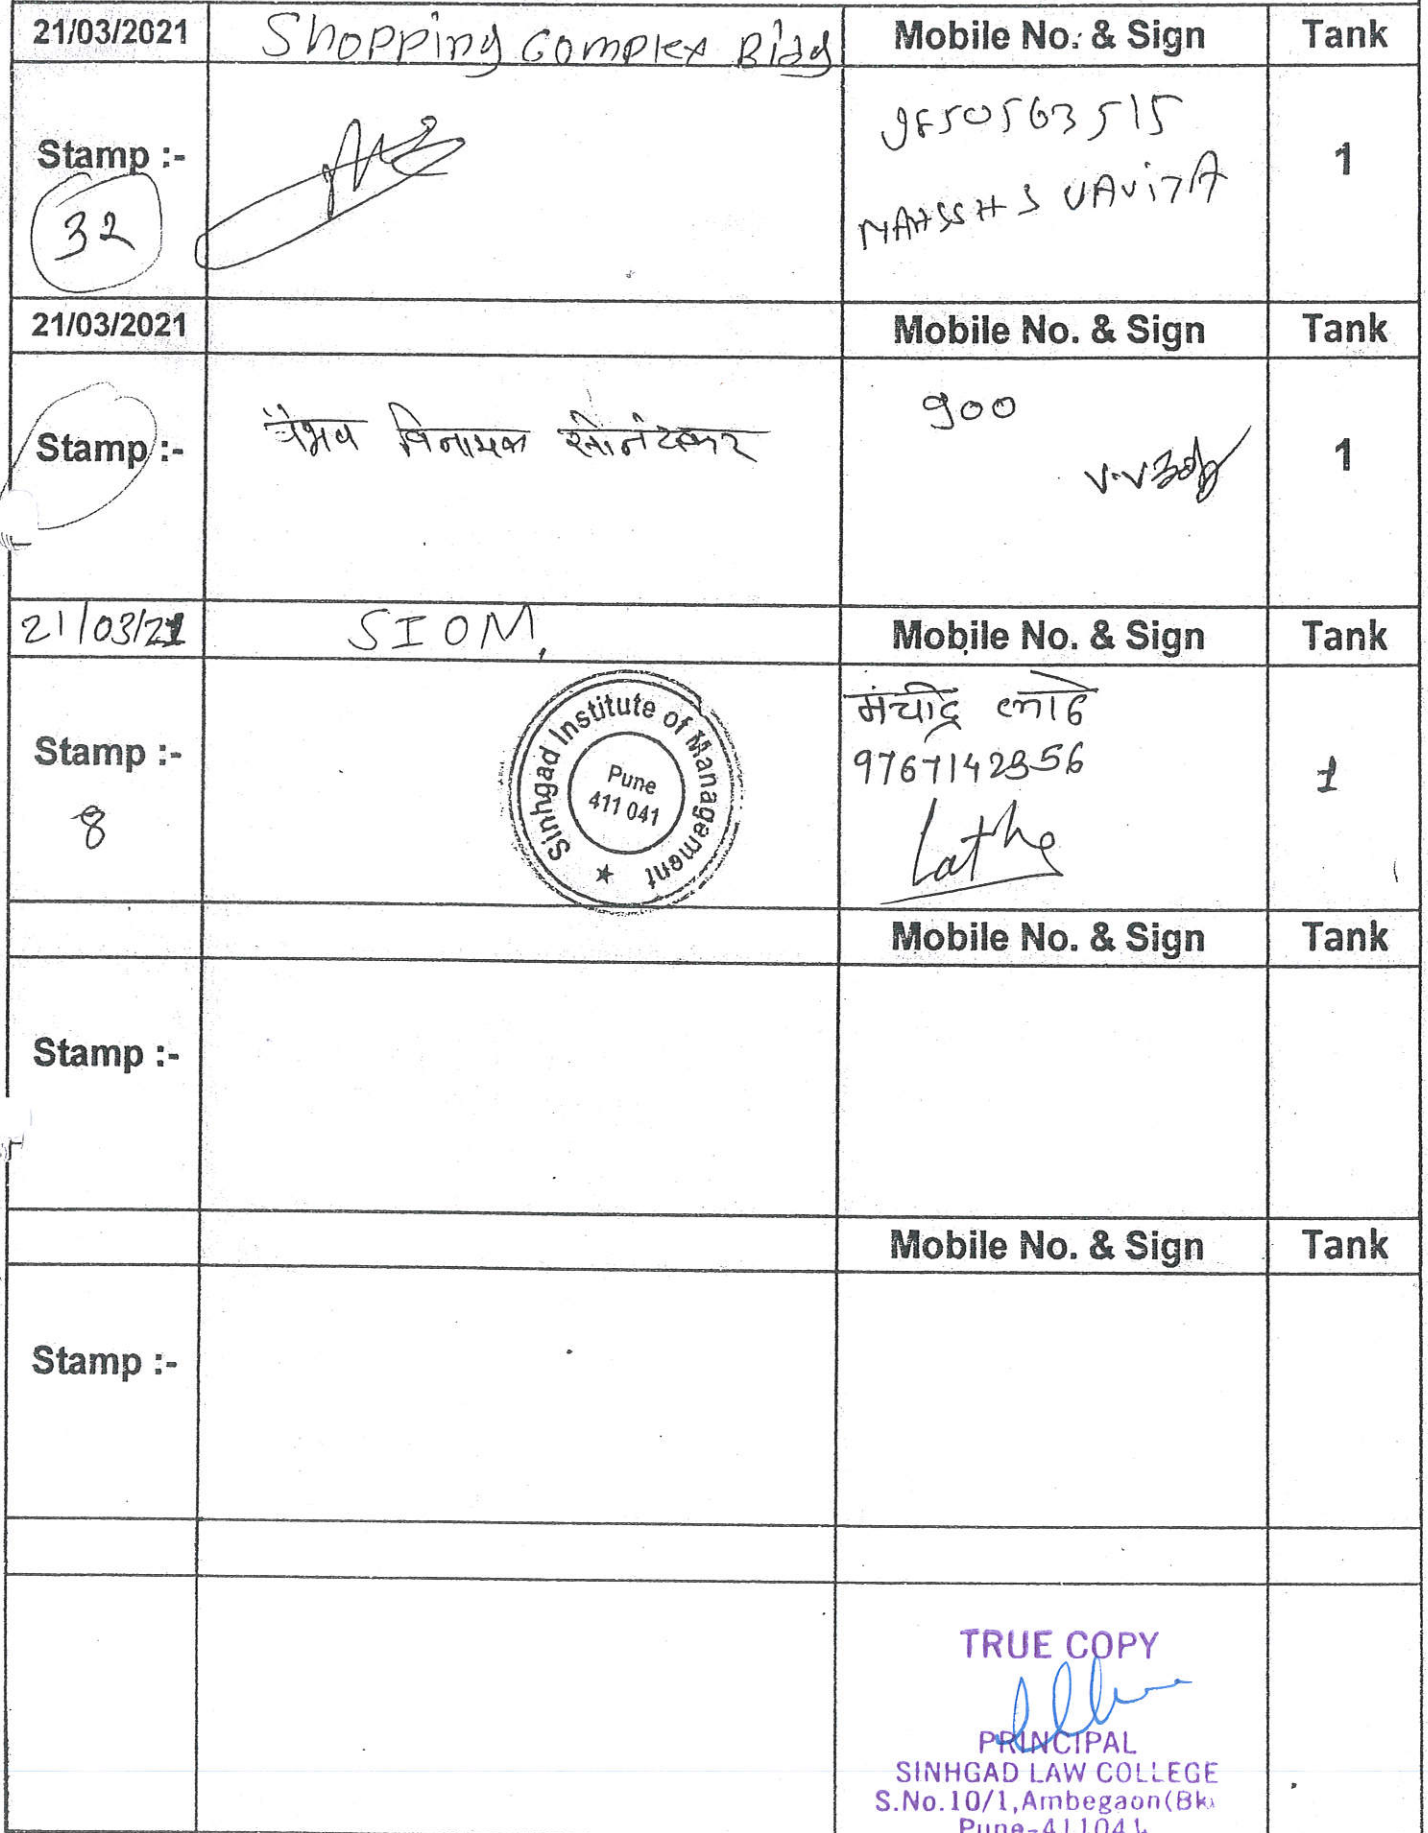 21/03/2021 Shopping Complex Bldg Mobile No. & Sign Tank
Stamp :- 1
32
21/03/2021 Mobile No. & Sign Tank
Stamp :- वैभव विनायक 900 1
21/03/21 SIOM, Mobile No. & Sign Tank
Stamp :- 1
8
Sinhgad Institute of Management
Pune
411 041
9767142956
Lathe
Mobile No. & Sign Tank
Stamp :-
Mobile No. & Sign Tank
Stamp :-
TRUE COPY
PRINCIPAL
SINHGAD LAW COLLEGE
S.No.10/1,Ambegaon(Bk
Pune-411041